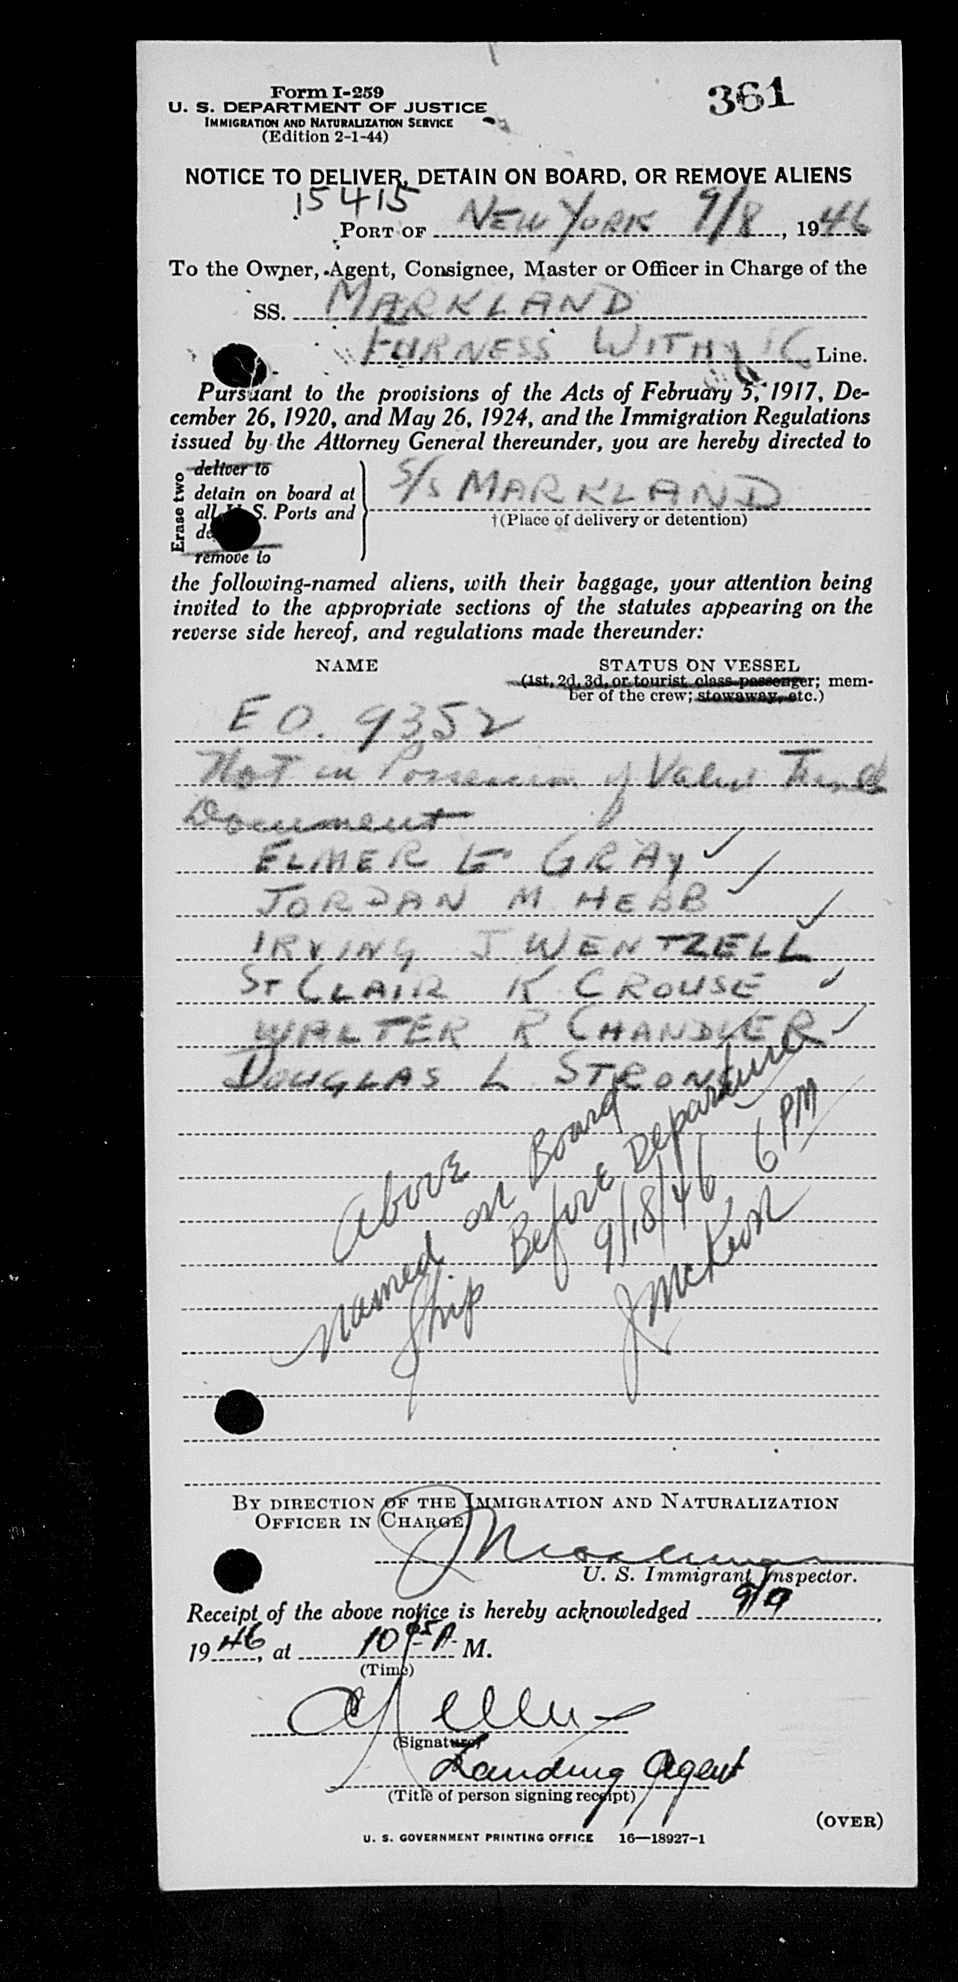 Form I-259
U. S. DEPARTMENT OF JUSTICE
IMMIGRATION AND NATURALIZATION SERVICE
(Edition 2-1-44)
361
NOTICE TO DELIVER, DETAIN ON BOARD, OR REMOVE ALIENS
15415
PORT OF NEW YORK 9/8, 1946
To the Owner, Agent, Consignee, Master or Officer in Charge of the
SS. MARKLAND
FURNESS WITHY Line.
Pursuant to the provisions of the Acts of February 5, 1917, De-
cember 26, 1920, and May 26, 1924, and the Immigration Regulations
issued by the Attorney General thereunder, you are hereby directed to
Erase two
deliver to
detain on board at
all U. S. Ports and
remove to
S/S MARKLAND
†(Place of delivery or detention)
the following-named aliens, with their baggage, your attention being
invited to the appropriate sections of the statutes appearing on the
reverse side hereof, and regulations made thereunder:
NAME STATUS ON VESSEL
(1st, 2d, 3d, or tourist class passenger; mem-
ber of the crew; stowaway, etc.)
E O. 9352
Not in Possession of Valid Travel
Document
ELMER E GRAY ✓
JORDAN M HEBB ✓
IRVING J WENTZELL ✓
ST CLAIR K CROUSE ✓
WALTER R CHANDLER ✓
DOUGLAS L STRONG
Above
named on Board
Ship Before Departure
9/18/46 6 PM
J McKeon
BY DIRECTION OF THE IMMIGRATION AND NATURALIZATION
OFFICER IN CHARGE
U. S. Immigrant Inspector.
Receipt of the above notice is hereby acknowledged 9/9,
1946, at 10 05 A. M.
(Time)
(Signature)
Landing Agent
(Title of person signing receipt)
(OVER)
U. S. GOVERNMENT PRINTING OFFICE 16—18927-1